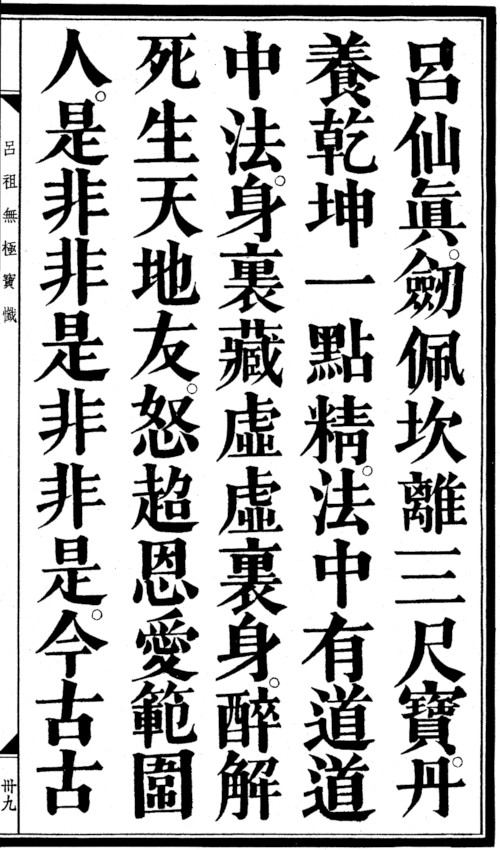 呂仙眞。劒佩坎離三尺寶。丹
養乾坤一點精。法中有道道
中法。身裏藏虛虛裏身。醉解
死生天地友。怒超恩愛範圍
人。是非非是非非是。今古古
呂祖無極寶懺
卅九